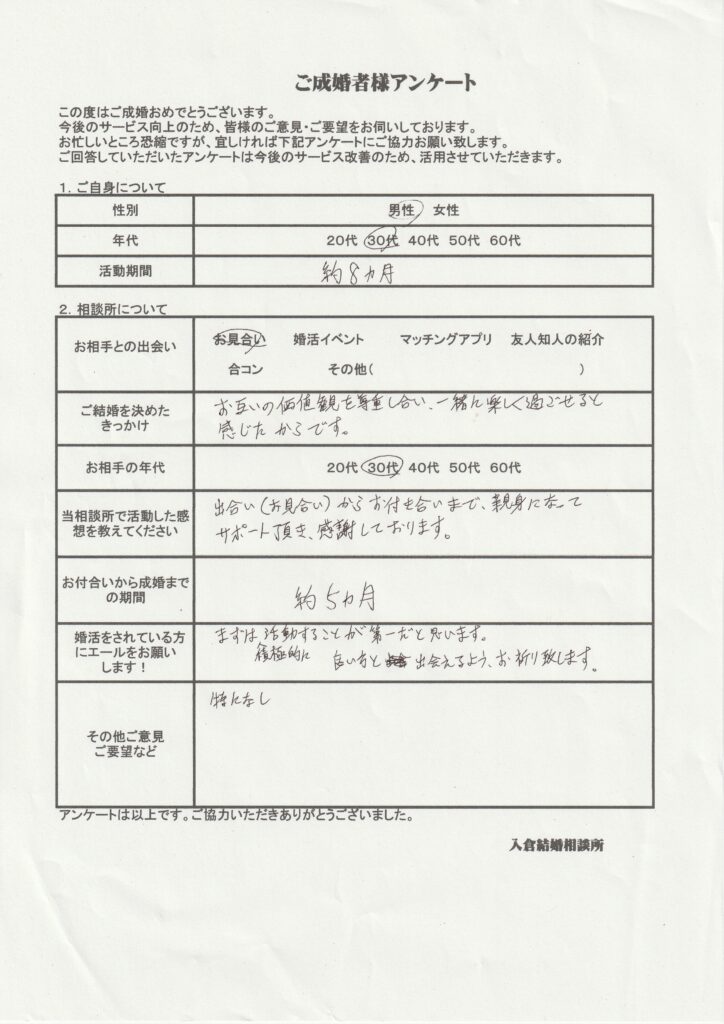 ご成婚者様アンケート
この度はご成婚おめでとうございます。
今後のサービス向上のため、皆様のご意見・ご要望をお伺いしております。
お忙しいところ恐縮ですが、宜しければ下記アンケートにご協力お願い致します。
ご回答していただいたアンケートは今後のサービス改善のため、活用させていただきます。
1. ご自身について
性別 男性 女性
年代 20代 30代 40代 50代 60代
活動期間 約8ヵ月
2. 相談所について
お相手との出会い お見合い 婚活イベント マッチングアプリ 友人知人の紹介
合コン その他( )
ご結婚を決めた
きっかけ
お互いの価値観を尊重し合い、一緒に楽しく過ごせると
感じたからです。
お相手の年代 20代 30代 40代 50代 60代
当相談所で活動した感
想を教えてください
出合い(お見合い)からお付き合いまで、親身になって
サポート頂き、感謝しております。
お付合いから成婚まで
の期間
約5ヵ月
婚活をされている方
にエールをお願い
します!
まずは活動することが第一だと思います。
積極的に 良い方と 出会えるよう、お祈り致します。
その他ご意見
ご要望など
特になし
アンケートは以上です。ご協力いただきありがとうございました。
入倉結婚相談所